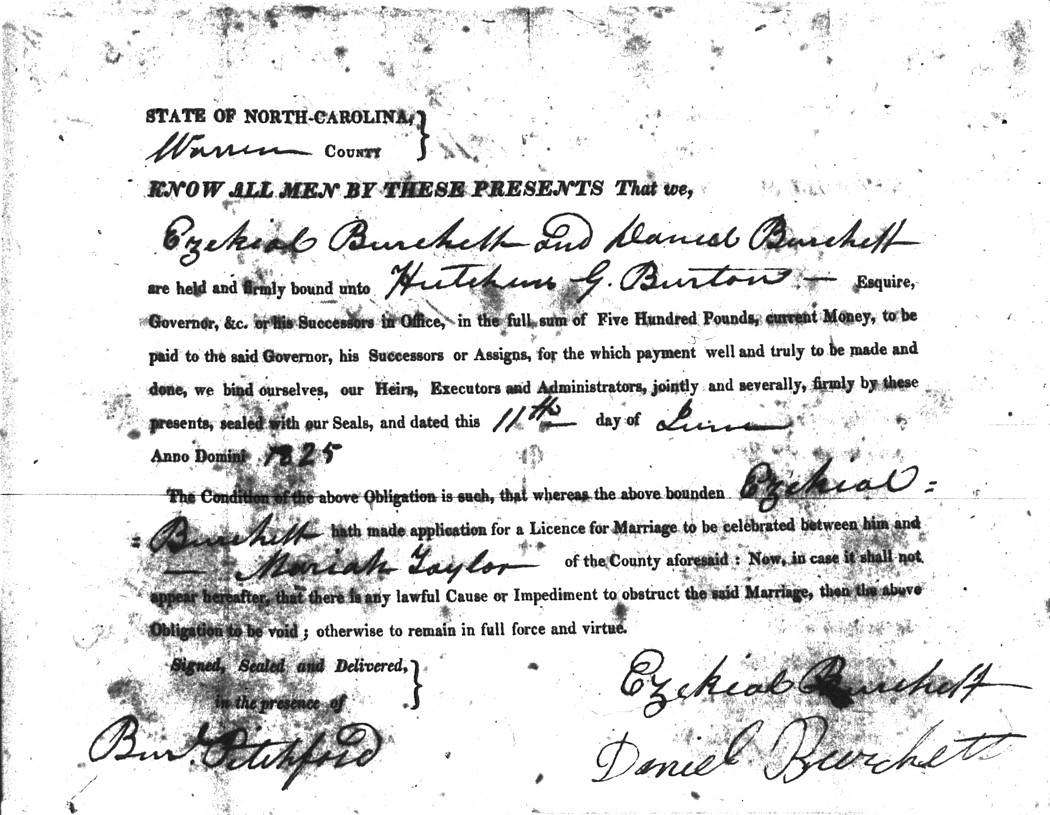 STATE OF NORTH-CAROLINA,
Warren COUNTY
KNOW ALL MEN BY THESE PRESENTS That we,
Ezekial Burchett and Daniel Burchett
are held and firmly bound unto Hutchins G. Burton — Esquire,
Governor, &c. or his Successors in Office, in the full sum of Five Hundred Pounds, current Money, to be
paid to the said Governor, his Successors or Assigns, for the which payment well and truly to be made and
done, we bind ourselves, our Heirs, Executors and Administrators, jointly and severally, firmly by these
presents, sealed with our Seals, and dated this 11th day of June
Anno Domini 1825
The Condition of the above Obligation is such, that whereas the above bounden Ezekial =
= Burchett hath made application for a Licence for Marriage to be celebrated between him and
— Mariah Taylor of the County aforesaid : Now, in case it shall not
appear hereafter, that there is any lawful Cause or Impediment to obstruct the said Marriage, then the above
Obligation to be void ; otherwise to remain in full force and virtue.
Signed, Sealed and Delivered,
in the presence of
Ezekial Burchett
Pitchford
Daniel Burchett